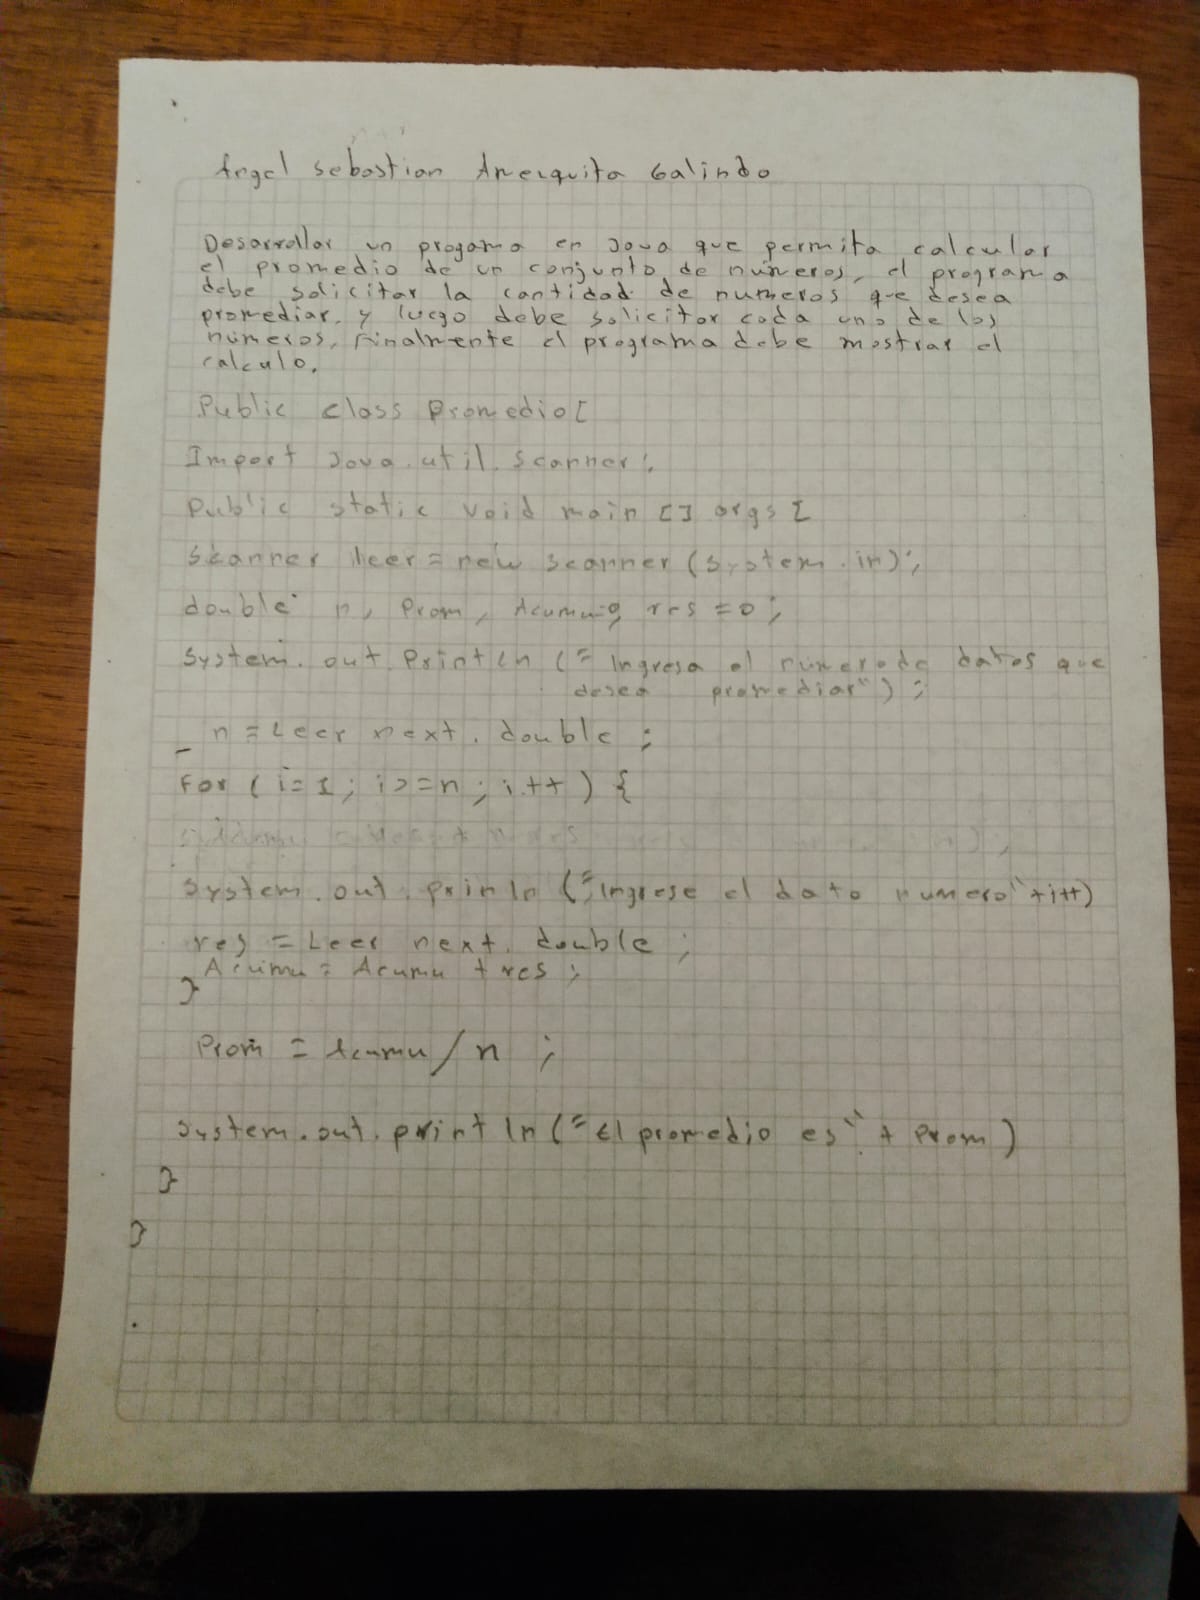 Angel Sebastian Amezquita Galindo
Desarrollar un progama en Java que permita calcular
el promedio de un conjunto de números, el programa
debe solicitar la cantidad de numeros que desea
promediar. y luego debe solicitar cada uno de los
números, Finalmente el programa debe mostrar el
calculo.
Public class Promedio[
Import Java.util.scanner;
Public static void main [] args [
Scanner leer = new scanner (system.in);
double n, Prom, res = 0;
System.out.Println (" Ingresa el numero de datos que
desea promediar");
n = Leer next.double ;
For ( i=1; i>=n; i++ ) {
System.out.prinln ("Ingrese el dato numero"+i++)
res = Leer next.double ;
Acumu = Acumu + res ;
}
Prom = Acumu / n ;
System.out.print ln ("El promedio es" + Prom )
}
}